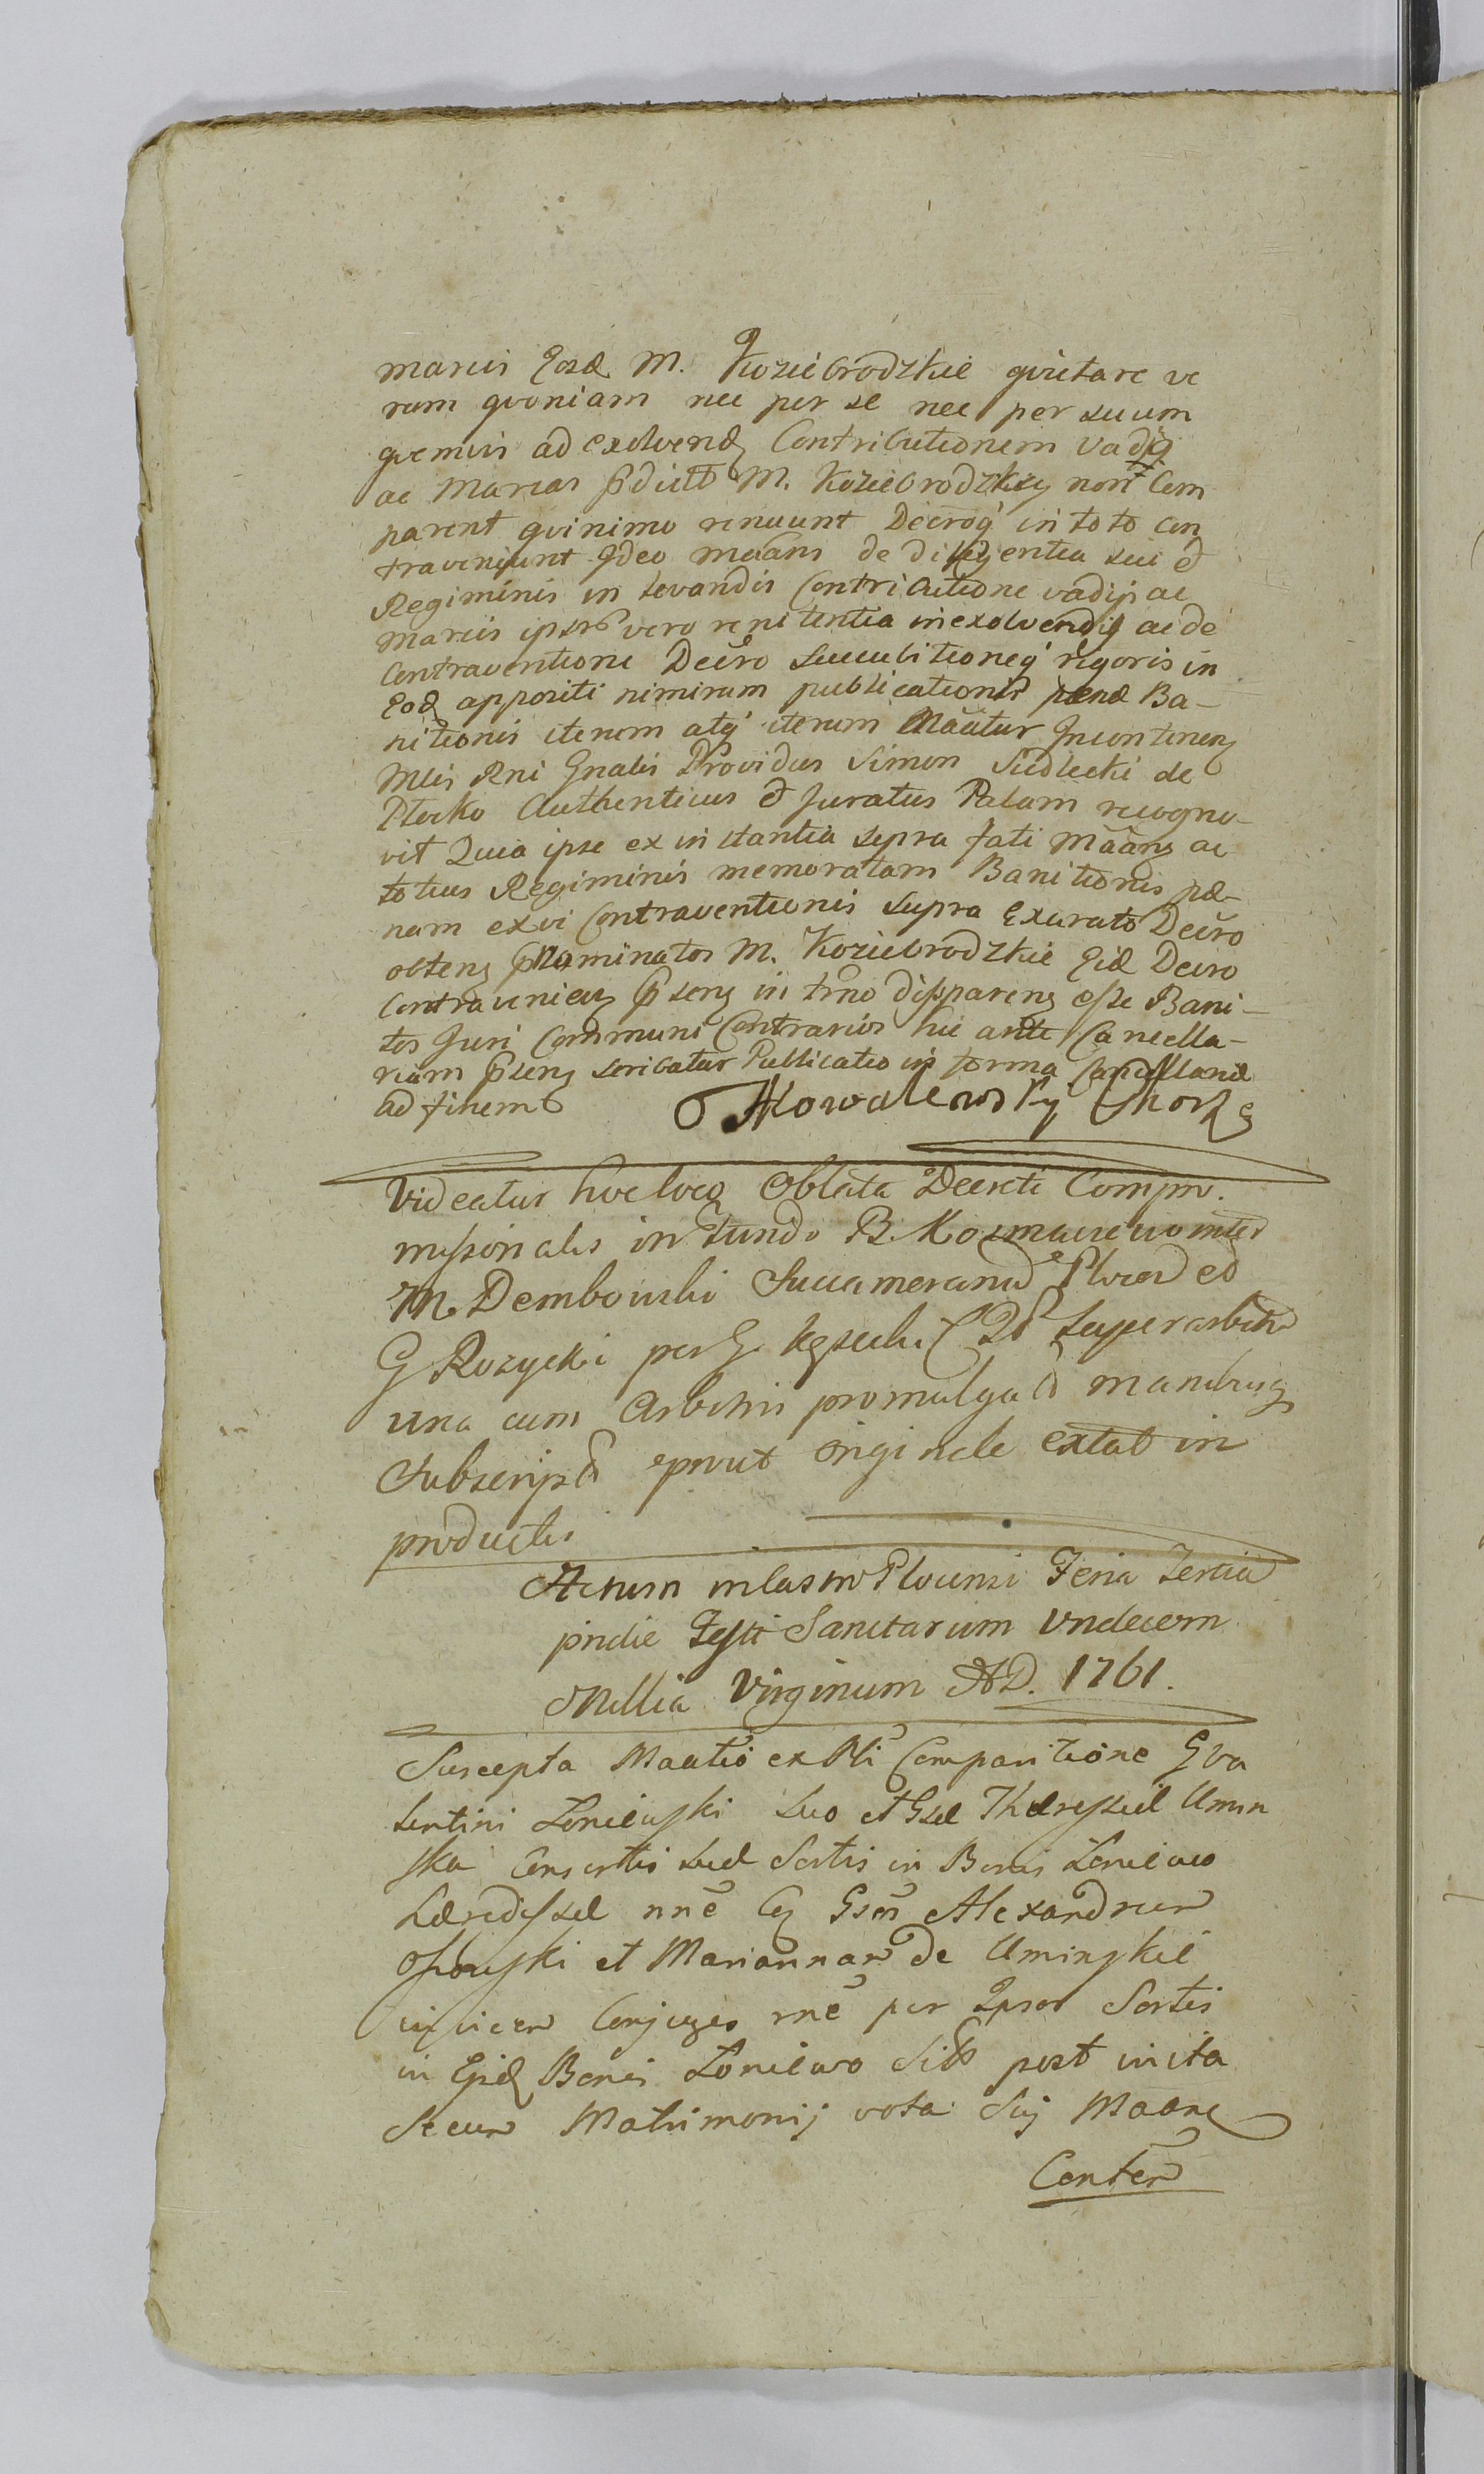 marcis Eosd M. Koziebrodzkie qvietare ve
rum qvoniam nec per se nec per suum
qvemvis ad exolvend Contributionem vadij
ac Marcas pdict M. Koziebrodzkie non Com
parent qvinimo renuunt Decroq in toto con
traveniunt Ideo Maans de diligentia sui et
Regiminis in levandis Contributione vadijs ac
Marcis ipsor vero renitentia in exolvendis ac de
Contraventione Decro Succubitioneq rigoris in
Eod appositi nimirum publicationis pœnæ Ba-
nitionis iterum atq iterum Maatur Incontinen
Mlis Rni Gnalis Providus Simon Siedlecki de
Płocko Authenticus et Juratus Palam recogno-
vit Quia ipse ex instantia supra fati Maans ac
totius Regiminis memoratam Banitionis pæ-
nam ex vi Contraventionis supra Exarato Decro
obtens pnominatos M. Koziebrodzkie Eid Decro
Contravenien psens in trno dispparens esse Bani-
tos Juri Communi Contrarios hic ante Cancella-
riam psens scribatur Publicatio in forma Cancellariæ
ad finem Kowalewsky
Videatur hoc loco Oblata Decreti Compro.
missorialis in fundo B. Kozmaczewo inter
M. Dembowski Succamerarium Plocen et
G Rozycki per G. Superarbitr
una cum Arbitris promulgati manibusq
Subscripti prout originale extat in
productis
Actum in Castro Plocensi Feria Tertia
pridie Festi Sanctarum Undecem
Millia Virginum AD. 1761.
Suscepta Maatio ex Pli Comparitione G Va
lentini Zoniewski suo et Gsæ Theressiæ Umin
ska Consortis suæ Sortis in Bonis Zoniewo
Hæredissæ nne Co Gsos Alexandrum
et Mariannam de Uminskie
invicem Conjuges rne per Ipsos Sortis
in Eisd Bonis Zoniewo post inita
Secum Matrimonij vota Sui Maane
Conten